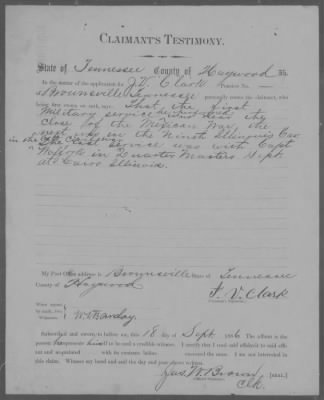 CLAIMANT'S TESTIMONY.
State of Tennessee County of Haywood SS.
In the matter of the application for J.V. Clark Pension No.
of Brownsville Tennessee personally comes the claimant, who
being first sworn on oath, says: That the first
Military service he performed was near the
close of the Mexican War the
next was in the Ninth Illinois Cav
in the The last service was with Capt
in Quarter Masters Dept
at Cairo Illinois.
My Post Office address is Brownsville State of Tennessee
County of Haywood
J. V. Clark
W. Barclay.
Subscribed and sworn to before me, this 18 day of Sept 1886 The affiant is the
person he represents himself to be and a credible witness. I certify that I read said affidavit to said affi-
ant and acquainted with its contents before executed the same. I am not interested in
this claim. Witness my hand and seal the day and year above written.
Jas W. Brown [SEAL.]
Clk.